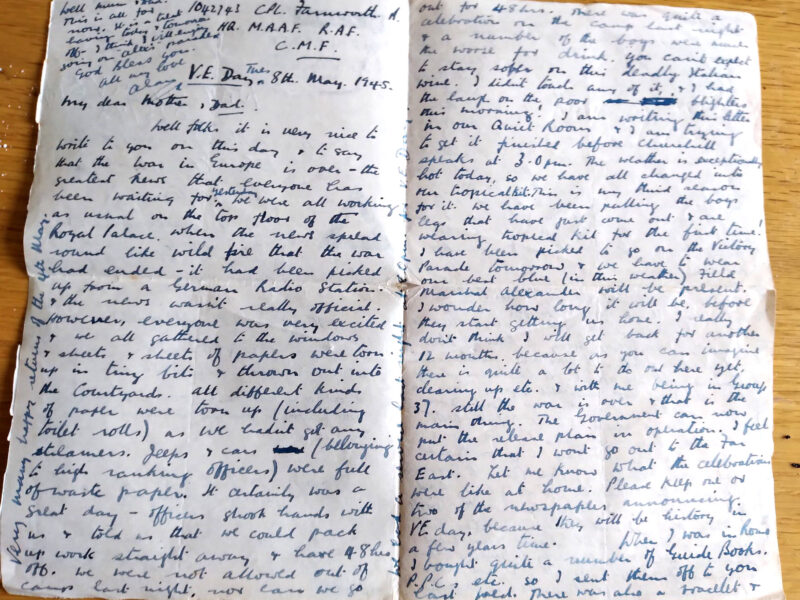 CPL. Farnworth A.
HQ. M.A.A.F. R.A.F.
C.M.F.
V.E. Day, Tues 8th. May. 1945.
My dear Mother & Dad.
Well folks it is very nice to
write to you on this day & to say
that the war in Europe is over - the
greatest news that everyone has
been waiting for. yesterday we were all working
as usual on the top floor of the
Royal Palace. when the news spread
round like wild fire that the war
had ended - it had been picked
up from a German Radio Station.
& the news wasn't really official.
However, everyone was very excited
& we all gathered to the windows
& sheets & sheets of papers were torn
up in tiny bits & thrown out into
the Courtyards. all different kinds
of paper were torn up (including
toilet rolls) as we hadn't got any
streamers. Jeeps & cars (belonging
to high ranking officers) were full
of waste paper. It certainly was a
great day - officers shook hands with
us & told us that we could pack
up work straight away & have 48 hrs
off. we were not allowed out of
camp last night, nor can we go
out for 48 hrs. There was quite a
celebration on the camp last night
& a number of the boys were much
the worse for drink. you can't expect
to stay sober on this deadly Italian
wine. I didn't touch any of it, & I had
the laugh on the poor blighters
this morning! I am writing this letter
in our Quiet Room & I am trying
to get it finished before Churchill
speaks at 3.0 pm. The weather is exceptionally
hot today, so we have all changed into
our tropical kit. This is my third season
for it. we have been pulling the boys
legs that have just come out & are
wearing tropical kit for the first time!
I have been picked to go on the Victory
Parade tomorrow & we have to wear
our best blue (in this weather) Field
Marshal Alexander will be present.
I wonder how long it will be, before
they start getting us home. I really
don't think I will get back for another
12 months. because as you can imagine
there is quite a lot to do out here yet,
clearing up etc. & with me being in Group
37. still the war is over & that is the
main thing. The Government can now
put the release plan in operation. I feel
certain that I wont go out to the Far
East. Let me know what the celebrations
were like at home. Please keep one or
two of the newspapers, announcing
VE day, because they will be history in
a few years time. When I was in Rome
I bought quite a number of Guide Books.
P.P.C's etc. so I sent them off to you
last week. There was also a bracelet &
Well Mum & Dad.
This is all for
now. It is a treat
having today & tomorrow
off. I think I will
God bless you.
all my love
Alan
Very many happy returns of the May.